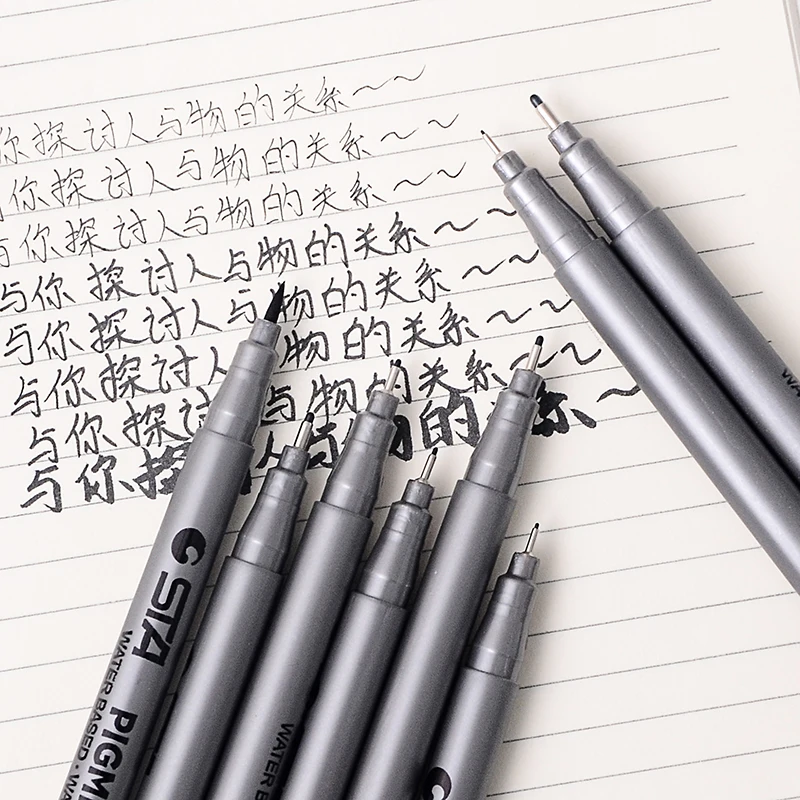 你探讨人与物的关系~~
你探讨人与物的关系~~
与你探讨人与物的关系~~
与你探讨人与物的关系~~
与你探讨人与物的关系~~
与你探讨人 物的关系~~
与你探讨 与物的关系~~
与你探 人与物的 系、~
STA
WATER BASED · WA
PIGME
WATER B
WA